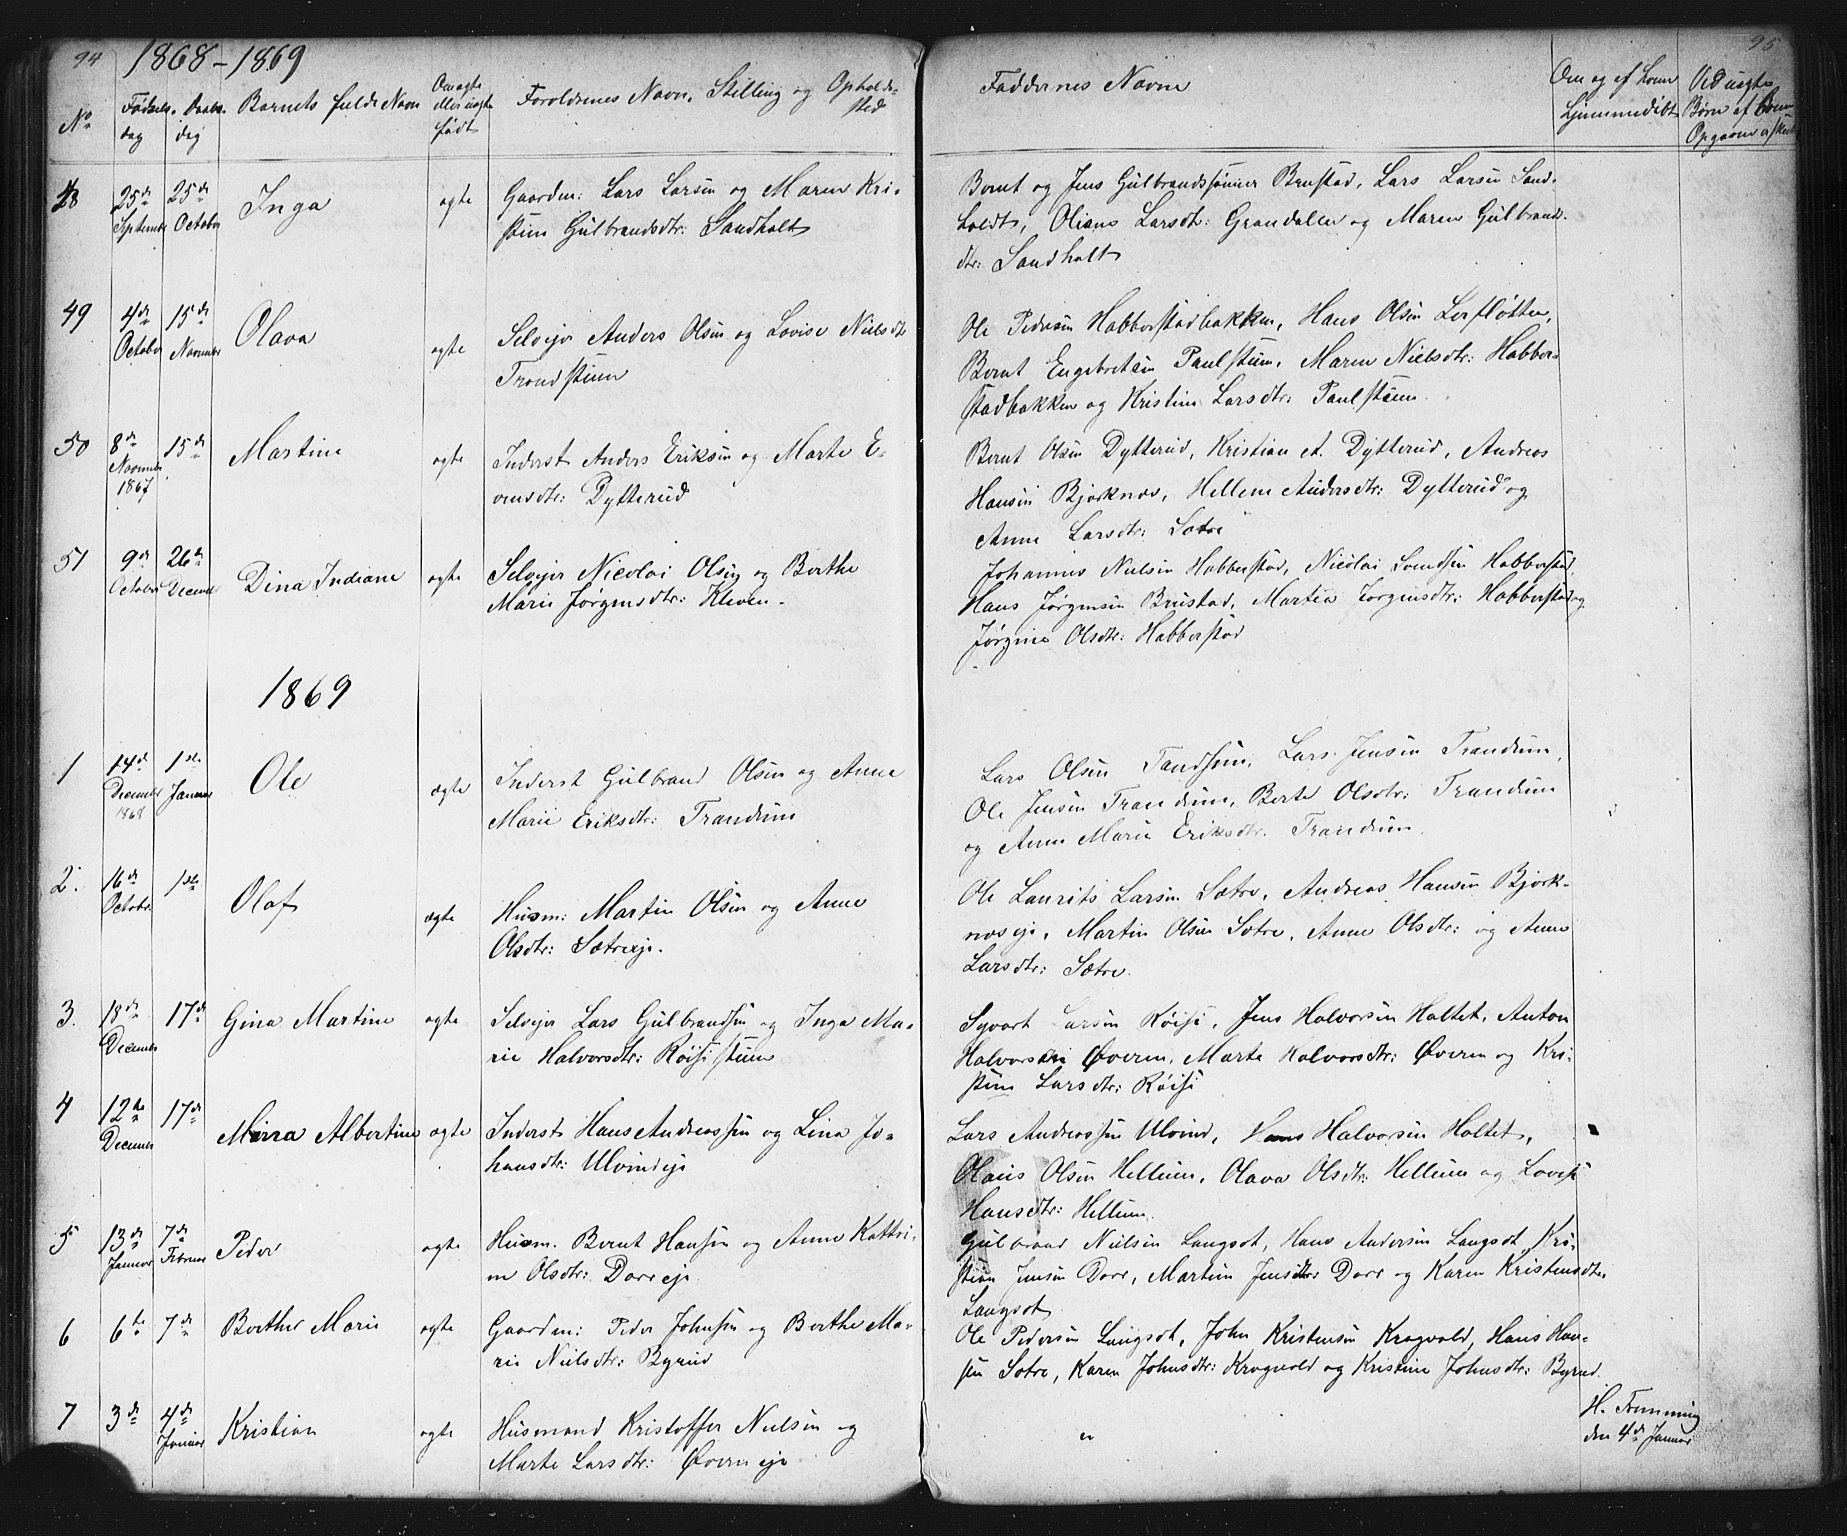 94 1868-1869
No
Fødsels-dag
Daabs-dag
Barnets fulde Navn
Om ægte eller uægte født
Forældrenes Navn, Stilling og Opholds-sted
48 25de September 25de October Inga ægte Gaardm: Lars Larsen og Maren Kri-
stine Gulbrandsdtr: Sandholt
49 4de October 15de November Olava ægte Selvejer Anders Olsen og Lovise Nielsdtr
Trondstuen
50 8de November 1867 15de Martine ægte Inderst Anders Eriksen og Marte E-
vensdtr: Dytterud
51 9de October 26de December Dina Indiane ægte Selvejer Nicolai Olsen og Berthe
Marie Jørgensdtr: Kleven.
1869
1 14de December 1868 1ste Januar Ole ægte Inderst Gulbrand Olsen og Anne
Marie Eriksdtr: Trandum
2. 16de October 1ste Olaf ægte Husm: Martin Olsen og Anne
Olsdtr: Sætreeje.
3. 18de December 17de Gina Martine ægte Selvejer Lars Gulbrandsen og Inga Ma-
rie Halvorsdtr: Röisistuen
4 12te December 17de Albertine ægte Inderst Hans Andreassen og Lina Jo-
hansdtr: Ulvindeje
5 13de Januar 7de Februar Peder ægte Husm. Bernt Hansen og Anne Kathri-
ne Olsdtr: Dorreje
6 6te 7de Berthe Marie ægte Gaardm: Peder Johnsen og Berthe Ma-
rie Nielsdtr: Byrud
7 3de 4de Januar Kristian ægte Husmand Kristoffer Nielsen og
Marte Larsdtr: Øverneje
95
Faddernes Navne
Om og af hvem hjemmedøbt
Ved uægte Børn af hvem Opgaven er skeet
Bernt og Jens Gulbrandssønner Brustad, Lars Larsen Sand-
holdt, Oliane Larsdtr: Grandallen og Maren Gulbrands-
dtr: Sandholt
Ole Pedersen Habberstadbakken, Hans Olsen Lerfløtten,
Bernt Engebretsen Paulstuen, Maren Nielsdtr: Habber-
stadbakken og Kristine Larsdtr: Paulstuen.
Bernt Olsen Dytterud, Kristian A. Dytterud, Andreas
Hansen Bjørknæs, Hellene Andersdtr: Dytterud og
Anne Larsdtr: Sætre
Johannes Nielsen Habberstad, Nicolai Svendsen Habberstad,
Hans Jørgensen Brustad, Martia Jørgensdtr: Habberstad og
Jørgine Olsdtr: Habberstad
Lars Olsen Lars Jensen Trandum,
Ole Jensen Trandum, Berte Olsdtr: Trandum
og Anne Marie Eriksdtr. Trandum.
Ole Laurits Larsen Sætre, Andreas Hansen Bjørk-
næseje, Martin Olsen Sætre, Anne Olsdtr: og Anne
Larsdtr: Sætre.
Syvert Larsen Röisi, Jens Halvorsen Holtet, Anton
Halvorsen Øveren, Marte Halvorsdtr: Øveren og Kri-
stine Larsdtr: Röisi
Lars Andreassen Ulvind, Hans Halvorsen Holtet,
Olaus Olsen Hellum, Olava Olsdtr: Hellum og Lovise
Hansdtr: Hellum.
Gulbrand Nielsen Langset, Hans Andersen Langset, Kri-
stian Jensen Dorr, Martine Jensdtr Dorr og Karen Kristensdtr.
Langset
Ole Pedersen Langset, John Kristensen Kragvold, Hans Han-
sen Sætre, Karen Johnsdtr: Kragvold og Kristine Johnsdtr: Byrud.
H. Flemming
den 4de Januar